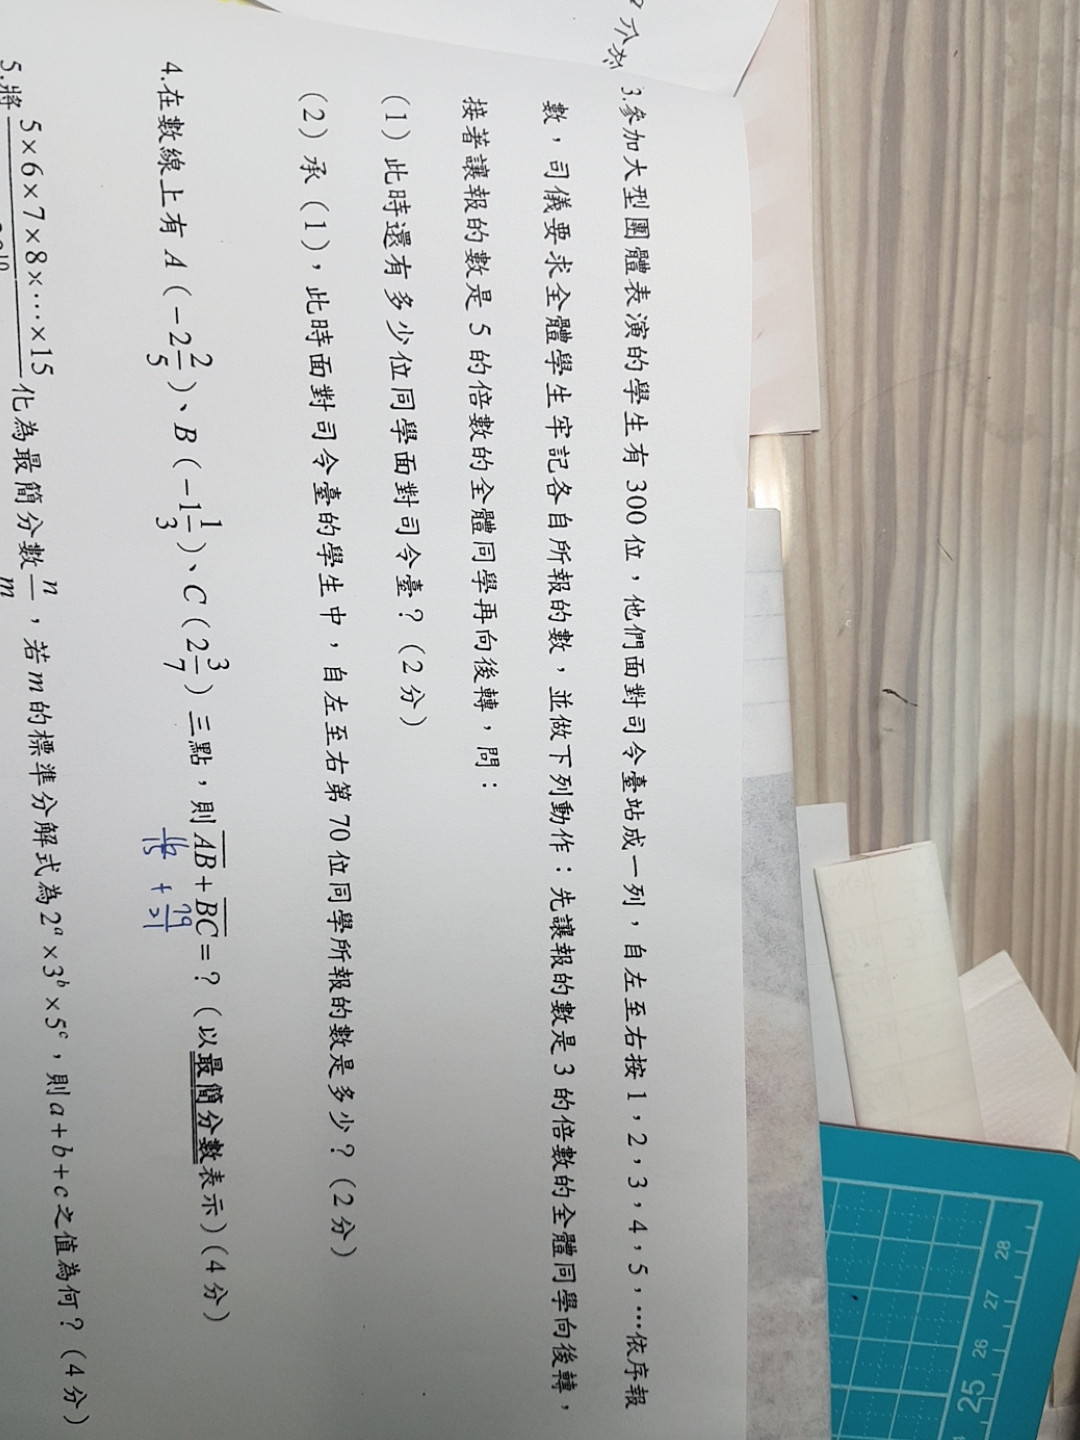 3.參加大型團體表演的學生有 300 位，他們面對司令臺站成一列，自左至右按 1，2，3，4，5，…依序報
數，司儀要求全體學生牢記各自所報的數，並做下列動作：先讓報的數是 3 的倍數的全體同學向後轉，
接著讓報的數是 5 的倍數的全體同學再向後轉，問：
(1) 此時還有多少位同學面對司令臺？(2 分)
(2) 承 (1)，此時面對司令臺的學生中，自左至右第 70 位同學所報的數是多少？(2 分)
4.在數線上有 A (−2 2/5)、B (−1 1/3)、C (2 3/7) 三點，則 AB + BC = ？(以最簡分數表示) (4 分)
16/15 + 79/21
5.將 5×6×7×8×…×15 化為最簡分數 n/m，若 m 的標準分解式為 2^a × 3^b × 5^c，則 a + b + c 之值為何？(4 分)
28
27
26
25